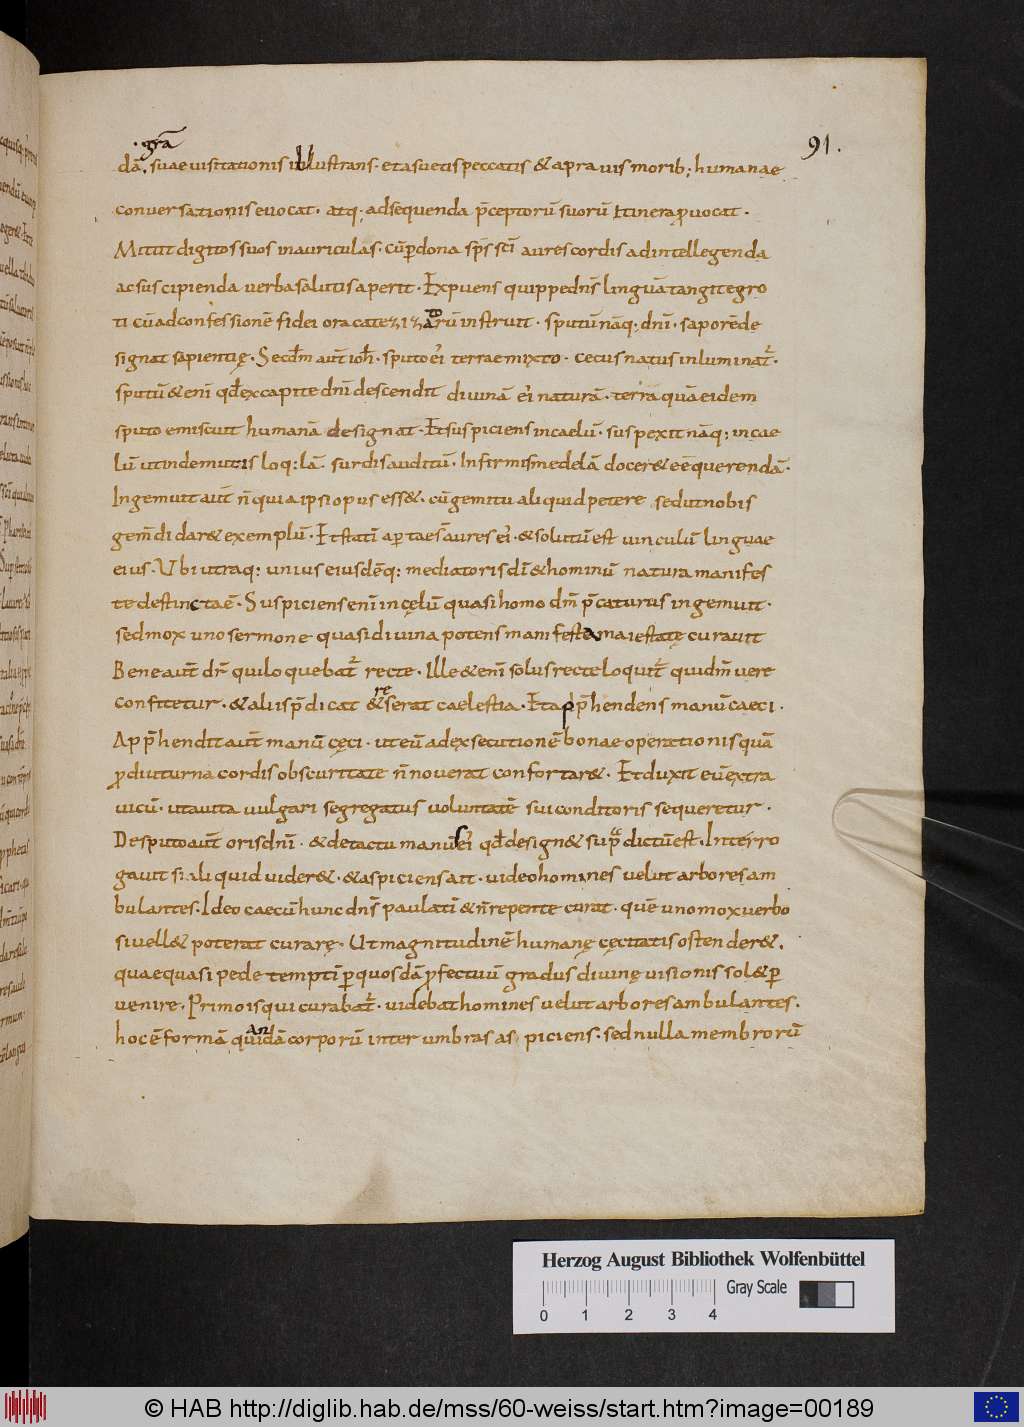 91.
·grā
dā. suae uisitationis illustrans· et asuetis peccatis & apra uis morib; humanae
conuersationis euocat· atq; adsequenda p̄ceptorū suorū itinera ꝓuocat·
Mittit digitos suos in auriculas· cū ꝑ dona sp̄s sc̄i aures cordis ad intellegenda
ac suscipienda uerba salutis aperit· Expuens quippe dn̄s linguā tangit egro
ti cū ad confessionē fidei ora catezizatorū instruit· sputū nāq; dn̄i· saporē de
signat sapientię· Secdm̄ aut̄ ioh̄· sputo ei terrae mixto· cecus natus inluminat̄·
sputū & eni qđ ex capite dn̄i descendit diuinā ei naturā· terra quā eidem
sputo emiscuit humanā designat· Et suspiciens in caelū· suspexit nāq: in cae
lū ut inde mutis loq:lā. surdis auditū· Infirmis medelā docer& eē querendā·
Ingemuit aut̄ n̄ quia ipsi opus ess&· cū gemitu aliquid petere sed ut nobis
gem̄di dar& exemplū· Et statī apertae s̄ aures ei· & solutū est uinculū linguae
eius· Ubi utraq: unius eiusdēq: mediatoris dī & hominū natura manifes
te destincta ē· Suspiciens enī in cęlū quasi homo dm̄ p̄caturus ingemuit·
sed mox uno sermone quasi diuina potens manifeste maiestate curauit
Bene aut̄ dr̄ quil oquebat̄ recte· Ille & eni solus recte loquit̄ qui dm̄ uere
confitetur· & aliis p̄dicat & re serat caelestia· Et app̄hendens manū caeci·
App̄hendit aut̄ manū cęci· ut eū ad exsecutionē bonae operationis quā
ꝓ diuturna cordis obscuritate n̄ nouerat confortar&· Et duxit eū extra
uicū· ut a uita uulgari segregatus uoluntatē sui conditoris sequeretur·
De sputo aut̄ oris dn̄i· & de tactu manus ei qđ design& supra dictū est· Interro
gauit si aliquid uider&· & aspiciens ait· uideo homines uelut arbores am
bulantes· Ideo caecū hunc dn̄s paulatī & n̄ repente curat· quē uno mox uerbo
si uell& poterat curare· Ut magnitudinē humanę cęcitatis ostender&·
quae quasi pede temptī ꝑ quosdā ꝓfectuū gradus diuinę uisionis sol& ꝑ
uenire· Primo is qui curabat̄· uidebat homines uelut arbores ambulantes·
hoc ē formā quandā corporū inter umbras aspiciens· sed nulla membrorū
Herzog August Bibliothek Wolfenbüttel
Gray Scale
0 1 2 3 4
© HAB http://diglib.hab.de/mss/60-weiss/start.htm?image=00189